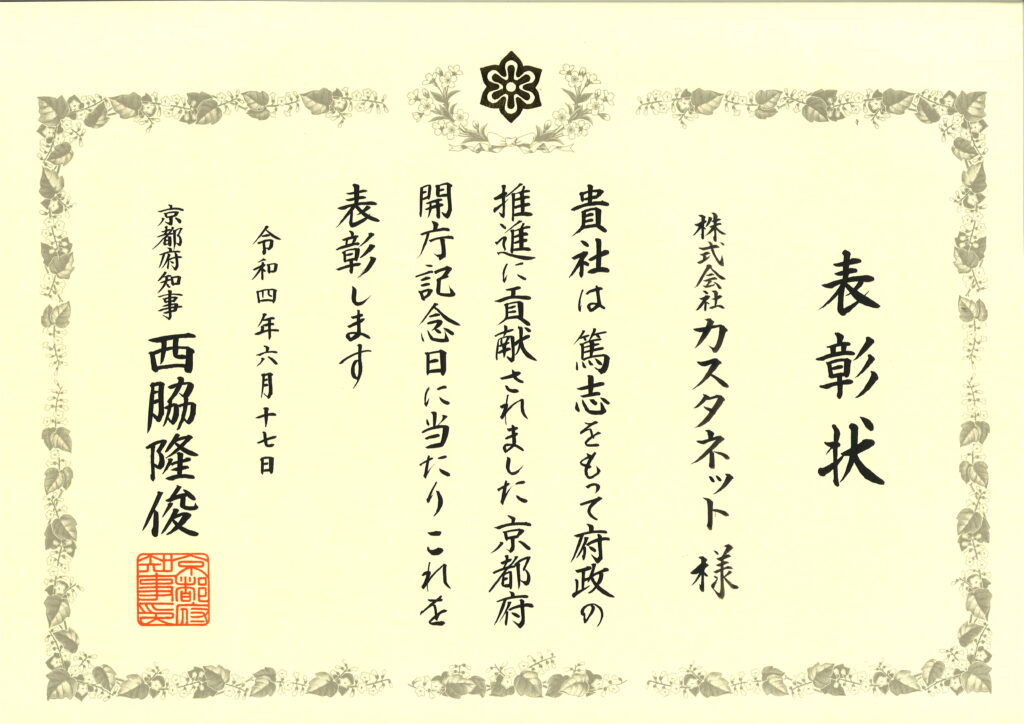 表彰状
株式会社カスタネット様
貴社は篤志をもって府政の
推進に貢献されました京都府
開庁記念日に当たりこれを
表彰します
令和四年六月十七日
京都府知事 西脇隆俊
京都府
知事印